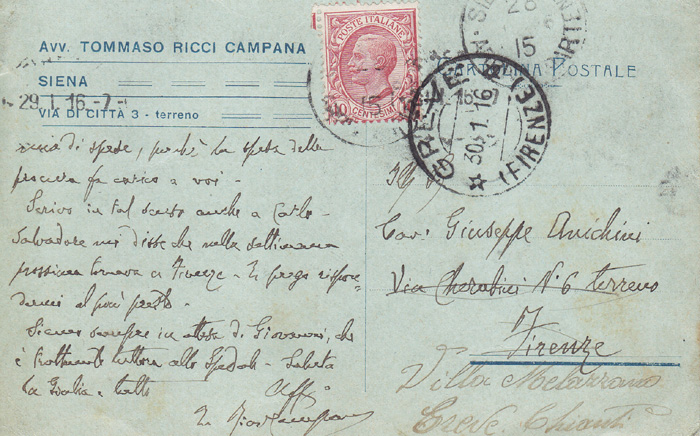 Avv. TOMMASO RICCI CAMPANA
SIENA
29.1.16-7-
VIA DI CITTÀ 3 - terreno
POSTE ITALIANE
10 CENTESIMI 10
CARTOLINA POSTALE
28
15
GREVE (FIRENZE)
30.1.16
di spese, perché la spesa della
procura fa carico a voi -
Scrivo in tal senso anche a Carlo -
Salvadore mi disse che nella settimana
prossima tornava a Firenze - Ti prego rispon-
dermi al più presto -
Siamo sempre in attesa di Giovanni, che
è trattenuto tuttora allo Spedale - Saluta
la Giulia e tutti
Aff.
T. Ricci Campana
Cav. Giuseppe Anichini
Via Cherubini N. 6 terreno
Firenze
Villa Melazzano
Greve Chianti